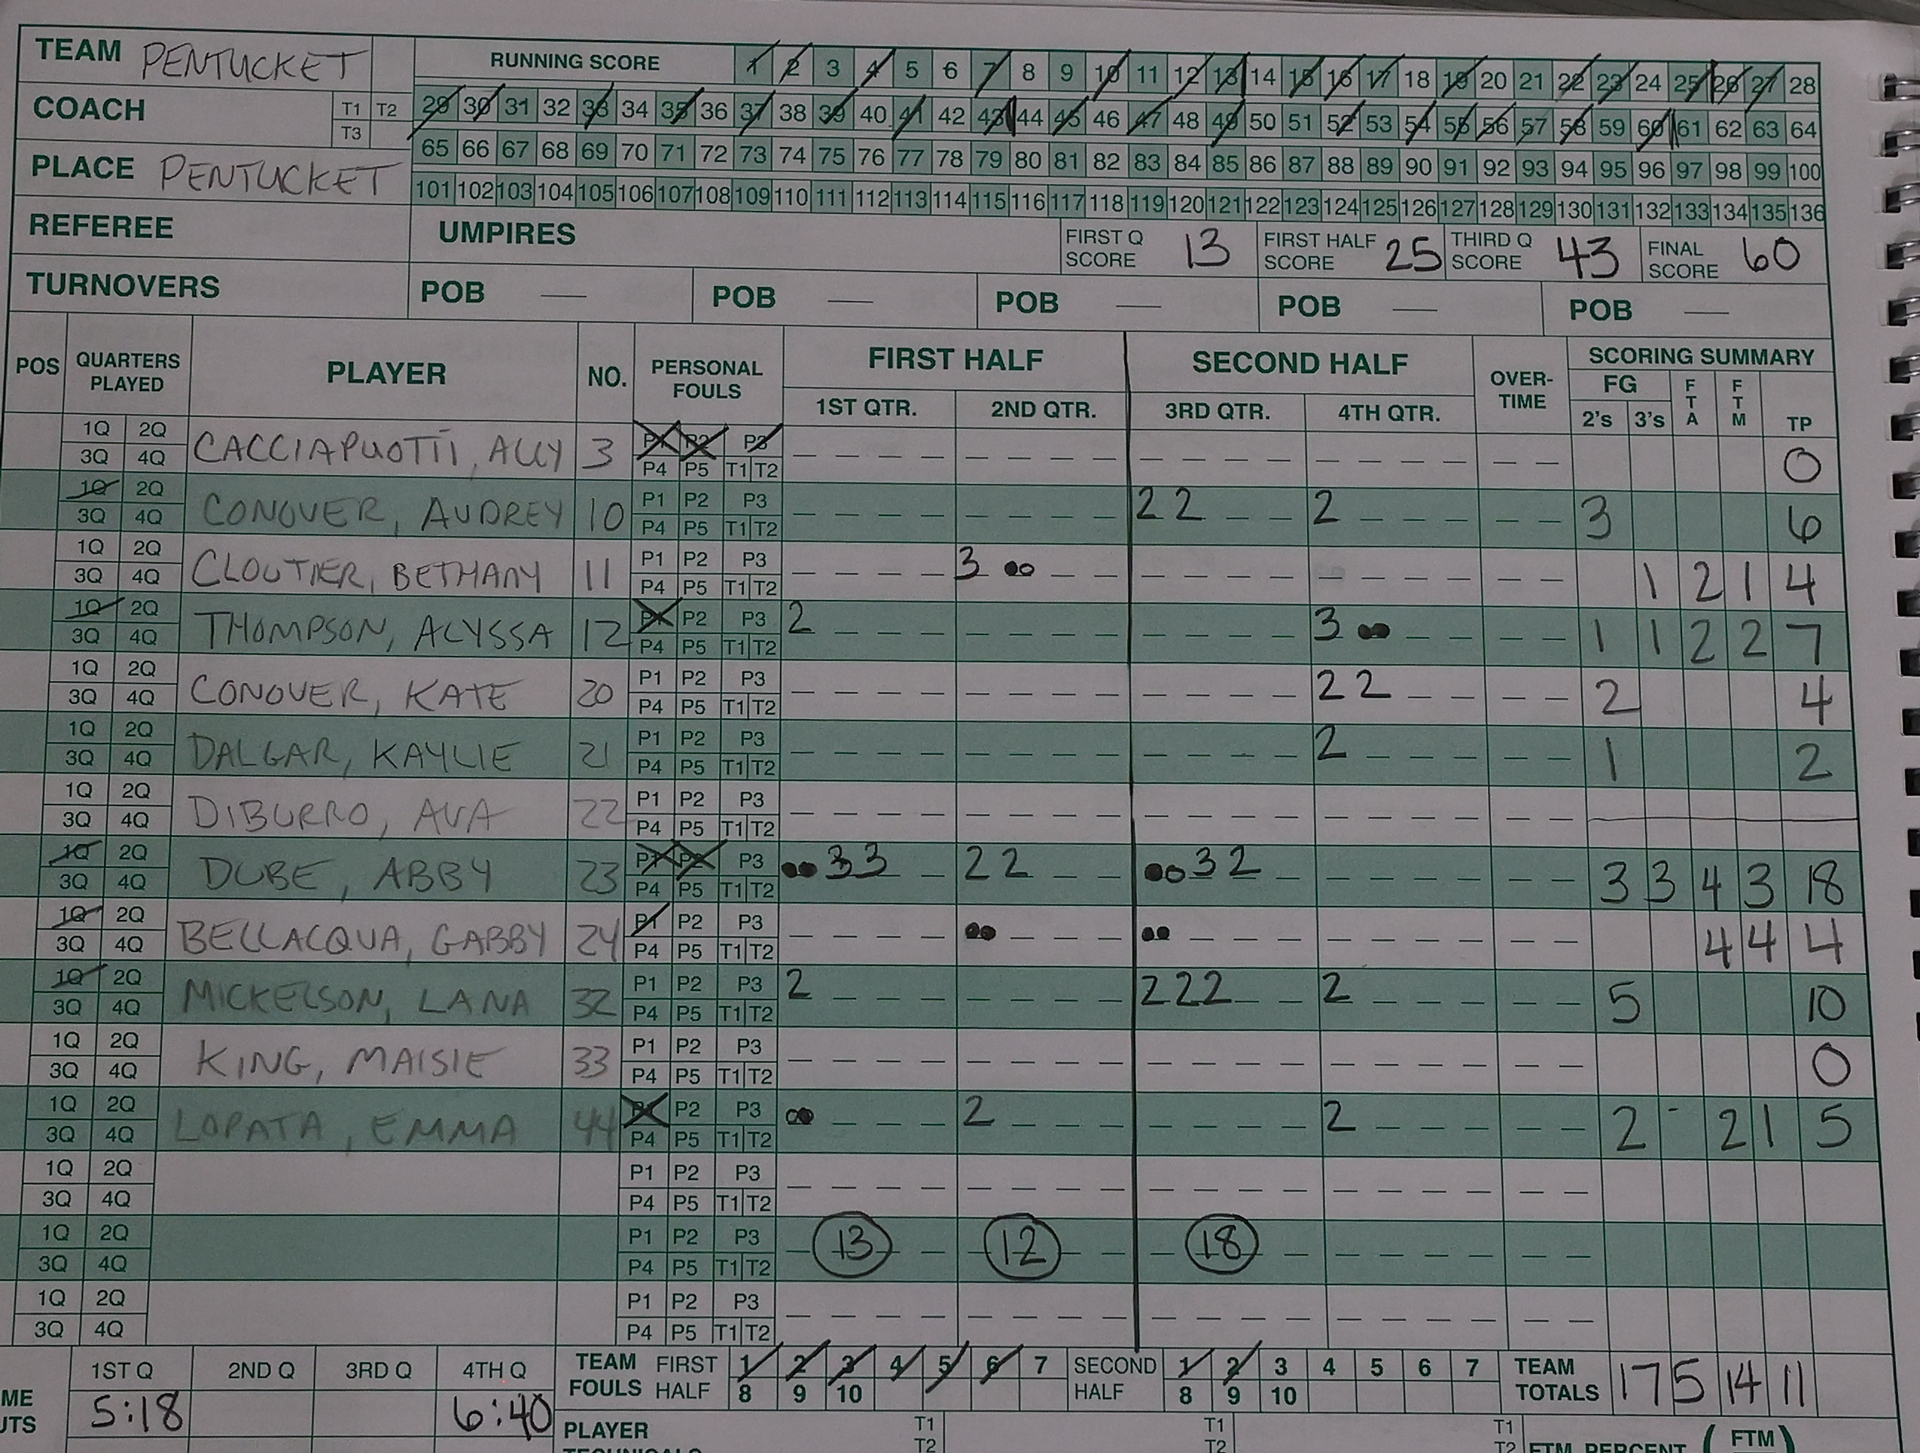 TEAM PENTUCKET RUNNING SCORE 1 2 3 4 5 6 7 8 9 10 11 12 13 14 15 16 17 18 19 20 21 22 23 24 25 26 27 28
COACH T1 T2 T3 29 30 31 32 33 34 35 36 37 38 39 40 41 42 43 44 45 46 47 48 49 50 51 52 53 54 55 56 57 58 59 60 61 62 63 64
65 66 67 68 69 70 71 72 73 74 75 76 77 78 79 80 81 82 83 84 85 86 87 88 89 90 91 92 93 94 95 96 97 98 99 100
PLACE PENTUCKET 101 102 103 104 105 106 107 108 109 110 111 112 113 114 115 116 117 118 119 120 121 122 123 124 125 126 127 128 129 130 131 132 133 134 135 136
REFEREE UMPIRES FIRST Q SCORE 13 FIRST HALF SCORE 25 THIRD Q SCORE 43 FINAL SCORE 60
TURNOVERS POB — POB — POB — POB — POB —
POS QUARTERS PLAYED PLAYER NO. PERSONAL FOULS FIRST HALF SECOND HALF OVER-TIME SCORING SUMMARY
1ST QTR. 2ND QTR. 3RD QTR. 4TH QTR. FG 2's 3's FTA FTM TP
1Q 2Q CACCIAPUOTTI, ALLY 3 P1 P2 P3 0
3Q 4Q P4 P5 T1 T2
1Q 2Q CONOVER, AUDREY 10 P1 P2 P3 2 2 2 3 6
3Q 4Q P4 P5 T1 T2
1Q 2Q CLOUTIER, BETHANY 11 P1 P2 P3 3 1 2 1 4
3Q 4Q P4 P5 T1 T2
1Q 2Q THOMPSON, ALYSSA 12 P1 P2 P3 2 3 1 1 2 2 7
3Q 4Q P4 P5 T1 T2
1Q 2Q CONOVER, KATE 20 P1 P2 P3 2 2 2 4
3Q 4Q P4 P5 T1 T2
1Q 2Q DALGAR, KAYLIE 21 P1 P2 P3 2 1 2
3Q 4Q P4 P5 T1 T2
1Q 2Q DIBURRO, AVA 22 P1 P2 P3
3Q 4Q P4 P5 T1 T2
1Q 2Q DUBE, ABBY 23 P1 P2 P3 3 3 2 2 3 2 3 3 4 3 18
3Q 4Q P4 P5 T1 T2
1Q 2Q BELLACQUA, GABBY 24 P1 P2 P3 4 4 4
3Q 4Q P4 P5 T1 T2
1Q 2Q MICKELSON, LANA 32 P1 P2 P3 2 2 2 2 2 5 10
3Q 4Q P4 P5 T1 T2
1Q 2Q KING, MAISIE 33 P1 P2 P3 0
3Q 4Q P4 P5 T1 T2
1Q 2Q LOPATA, EMMA 44 P1 P2 P3 2 2 2 - 2 1 5
3Q 4Q P4 P5 T1 T2
1Q 2Q P1 P2 P3
3Q 4Q P4 P5 T1 T2
1Q 2Q P1 P2 P3 13 12 18
3Q 4Q P4 P5 T1 T2
1Q 2Q P1 P2 P3
3Q 4Q P4 P5 T1 T2
1ST Q 2ND Q 3RD Q 4TH Q TEAM FOULS FIRST HALF 1 2 3 4 5 6 7 8 9 10 SECOND HALF 1 2 3 4 5 6 7 8 9 10 TEAM TOTALS 17 5 14 11
5:18 6:40
PLAYER T1 T2 T1 T2 T1 T2 FTM